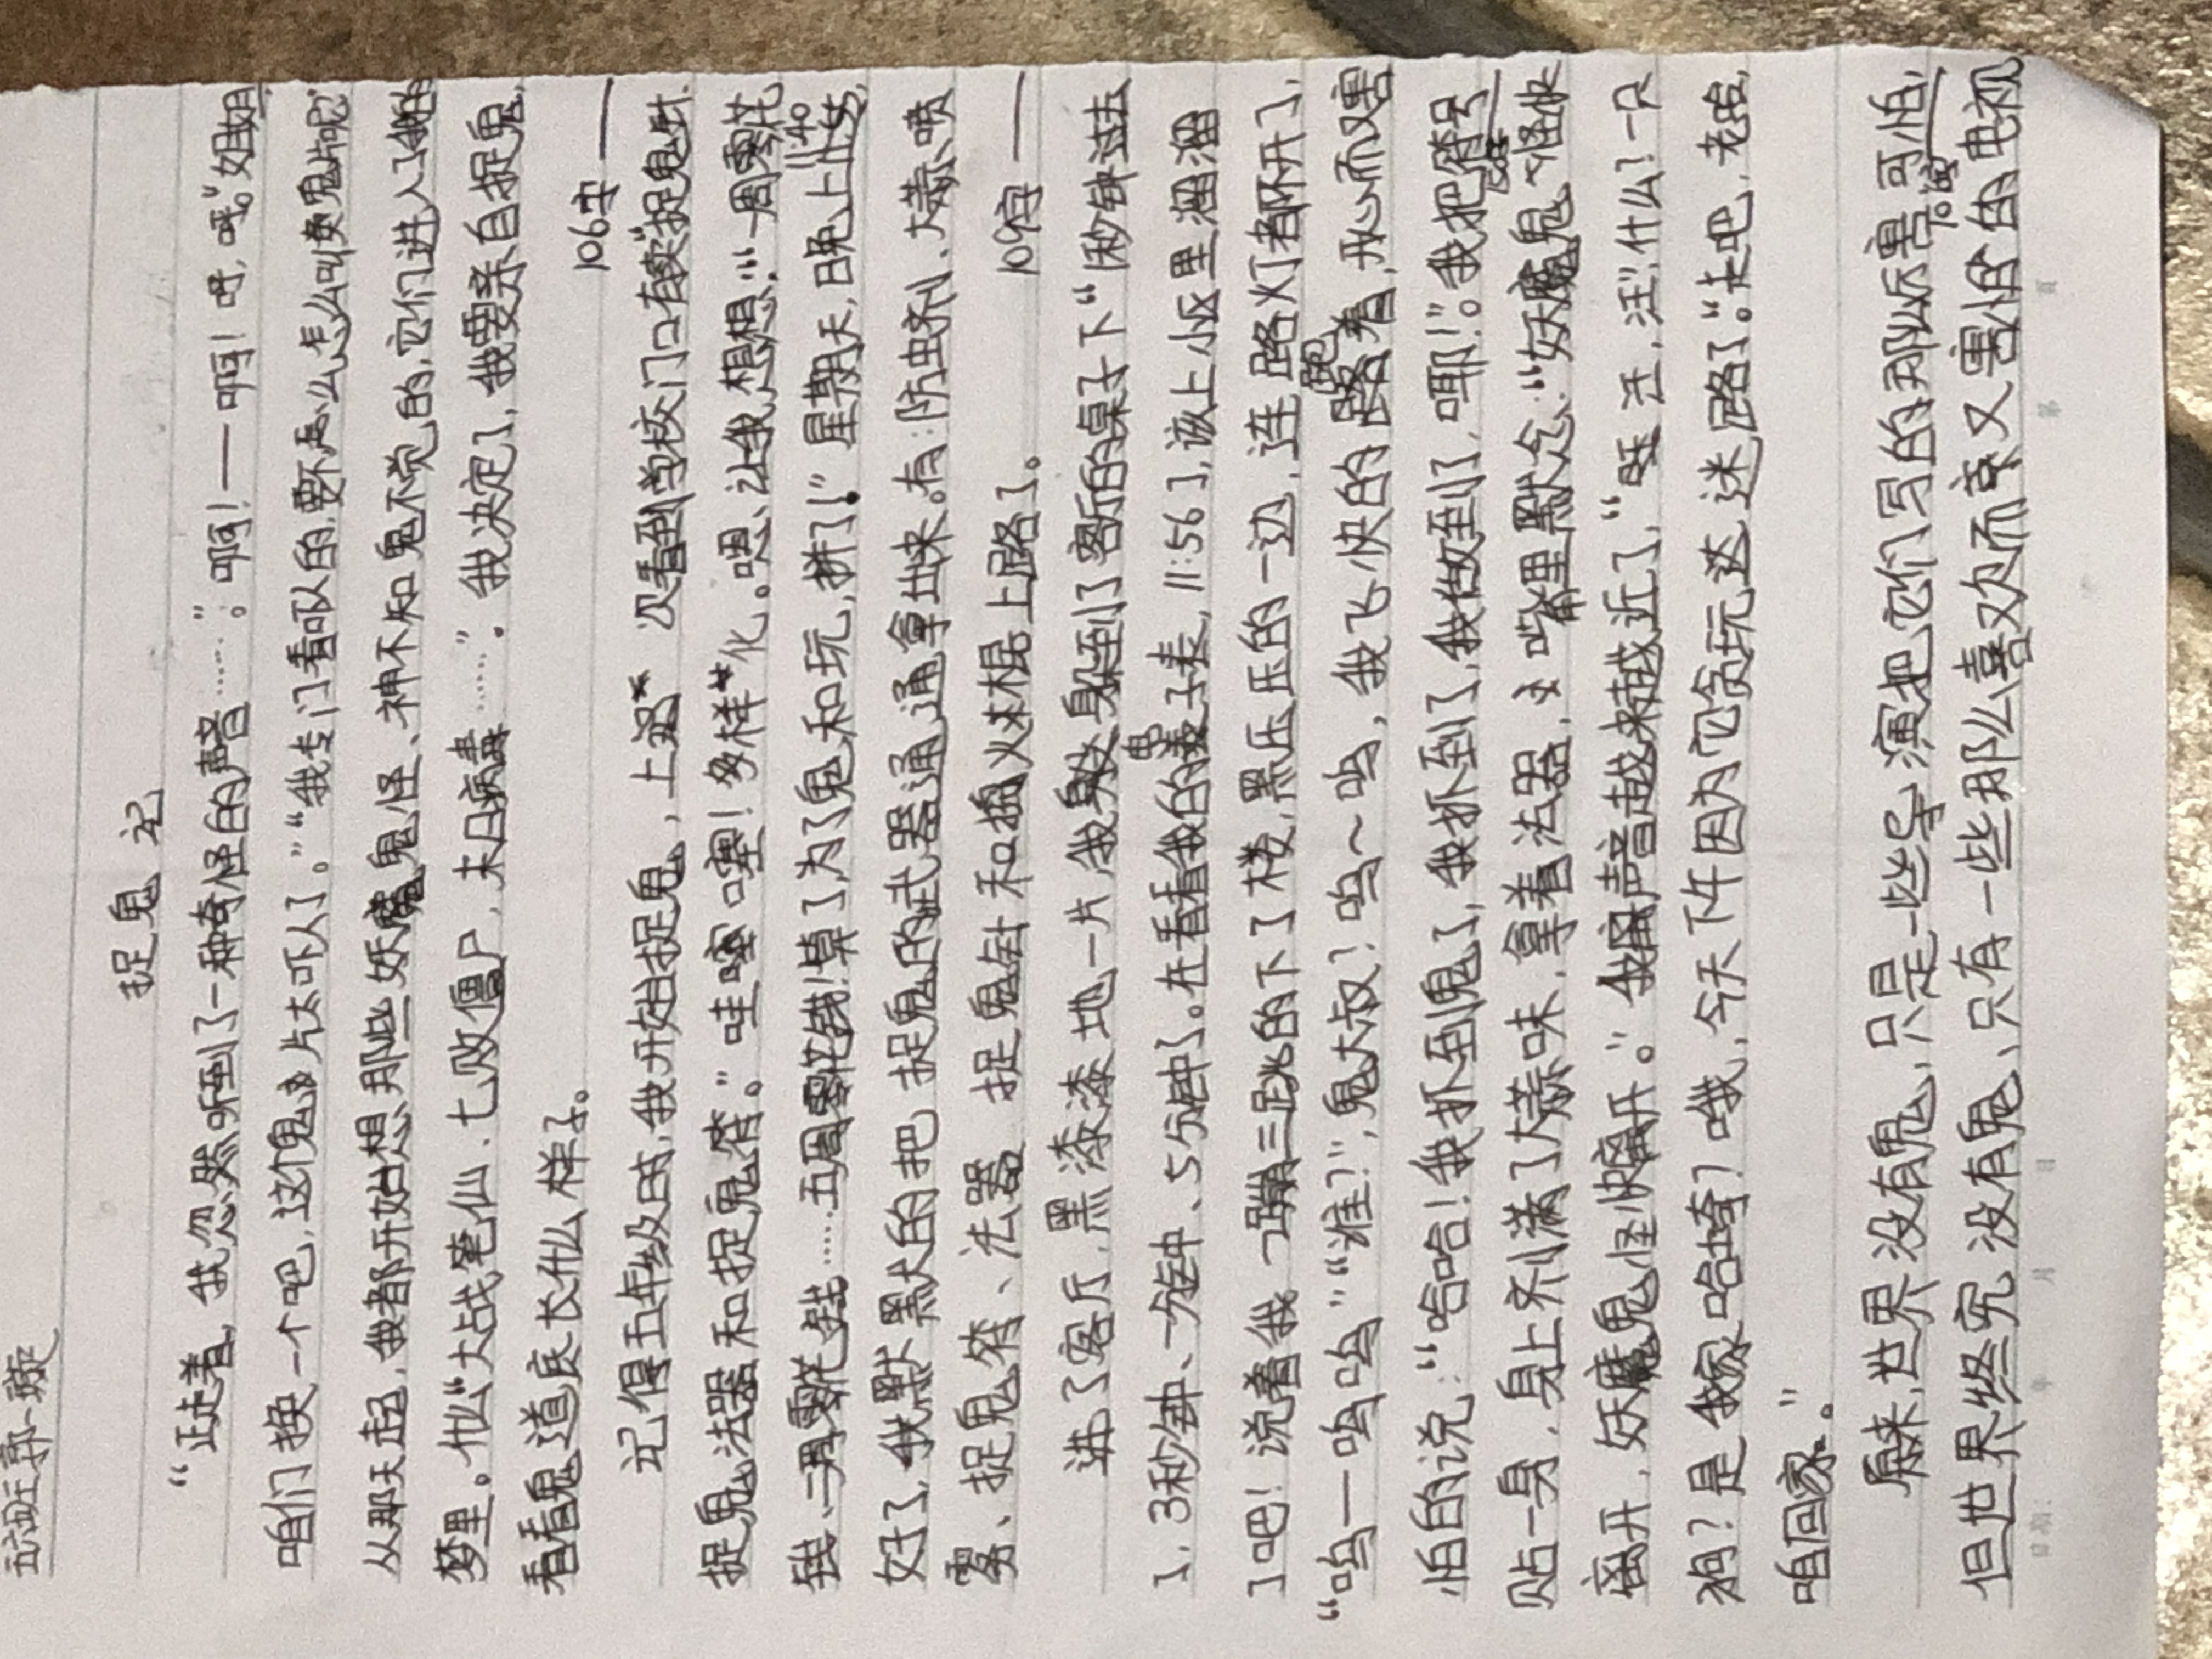 五班郭一璇
捉鬼记
“正走着，我忽然听到了一种奇怪的声音……”。啊！——啊！呼，呼。”姐姐
咱们换一个吧，这个鬼片太吓人了。”“我专门看吓人的，要不怎么怎么叫卖鬼片呢”
从那天起，我都开始想那些妖魔鬼怪、神不知鬼不觉的，它们进入了我的
梦里。什么“大战笔仙、七败僵尸，末日病毒……”。我决定了，我要亲自捉鬼，
看看鬼道底长什么样子。
106字——
记得五年级时，我开始捉鬼，上次 次看到学校门口有卖“捉鬼针
捉鬼法器和捉鬼符。”哇噻噻！多样“化。嗯、让我想想…“一周零花
钱、二周零花钱……五周零花钱！算了为了鬼和玩，拼了！”星期天，日晚上11:55，
11:40
好了，我默默的把捉鬼的武器通通拿出来。有：防虫剂、大蒜、喷
雾、捉鬼符、法器 捉鬼针和 火棍上路了。
109字——
进了客厅，黑漆漆地一片，我 身躲到了客厅的桌子下“1秒钟过去
了，3秒钟、一分钟、5分钟了。在看看我的电子表，11:56了，该上小区里溜溜
了吧！说着我一蹦三跳的下了楼，黑压压的一边，连路灯都坏了，
“呜—呜呜”“谁？”，鬼大叔？呜～呜，我飞快的跑着，开心而又害
怕的说：“哈哈！我抓到鬼了，我抓到了，我做到了，耶！”。我把符号
贴一身，身上齐满了大蒜味，拿着法器，嘴里默念：“妖魔鬼怪快
离开，妖魔鬼怪快离开。”声音越来越近了，“旺 汪，汪”，什么？一只
狗？是我家哈崎？哦，今天下午因为它贪玩达，迷路了。“走吧，老哈，
咱回家。”
原来，世界没有鬼，只是一些导演把它们写的那么厉害可怕，
但世界终究没有鬼、只有一些那么喜欢而亲又害怕的电视